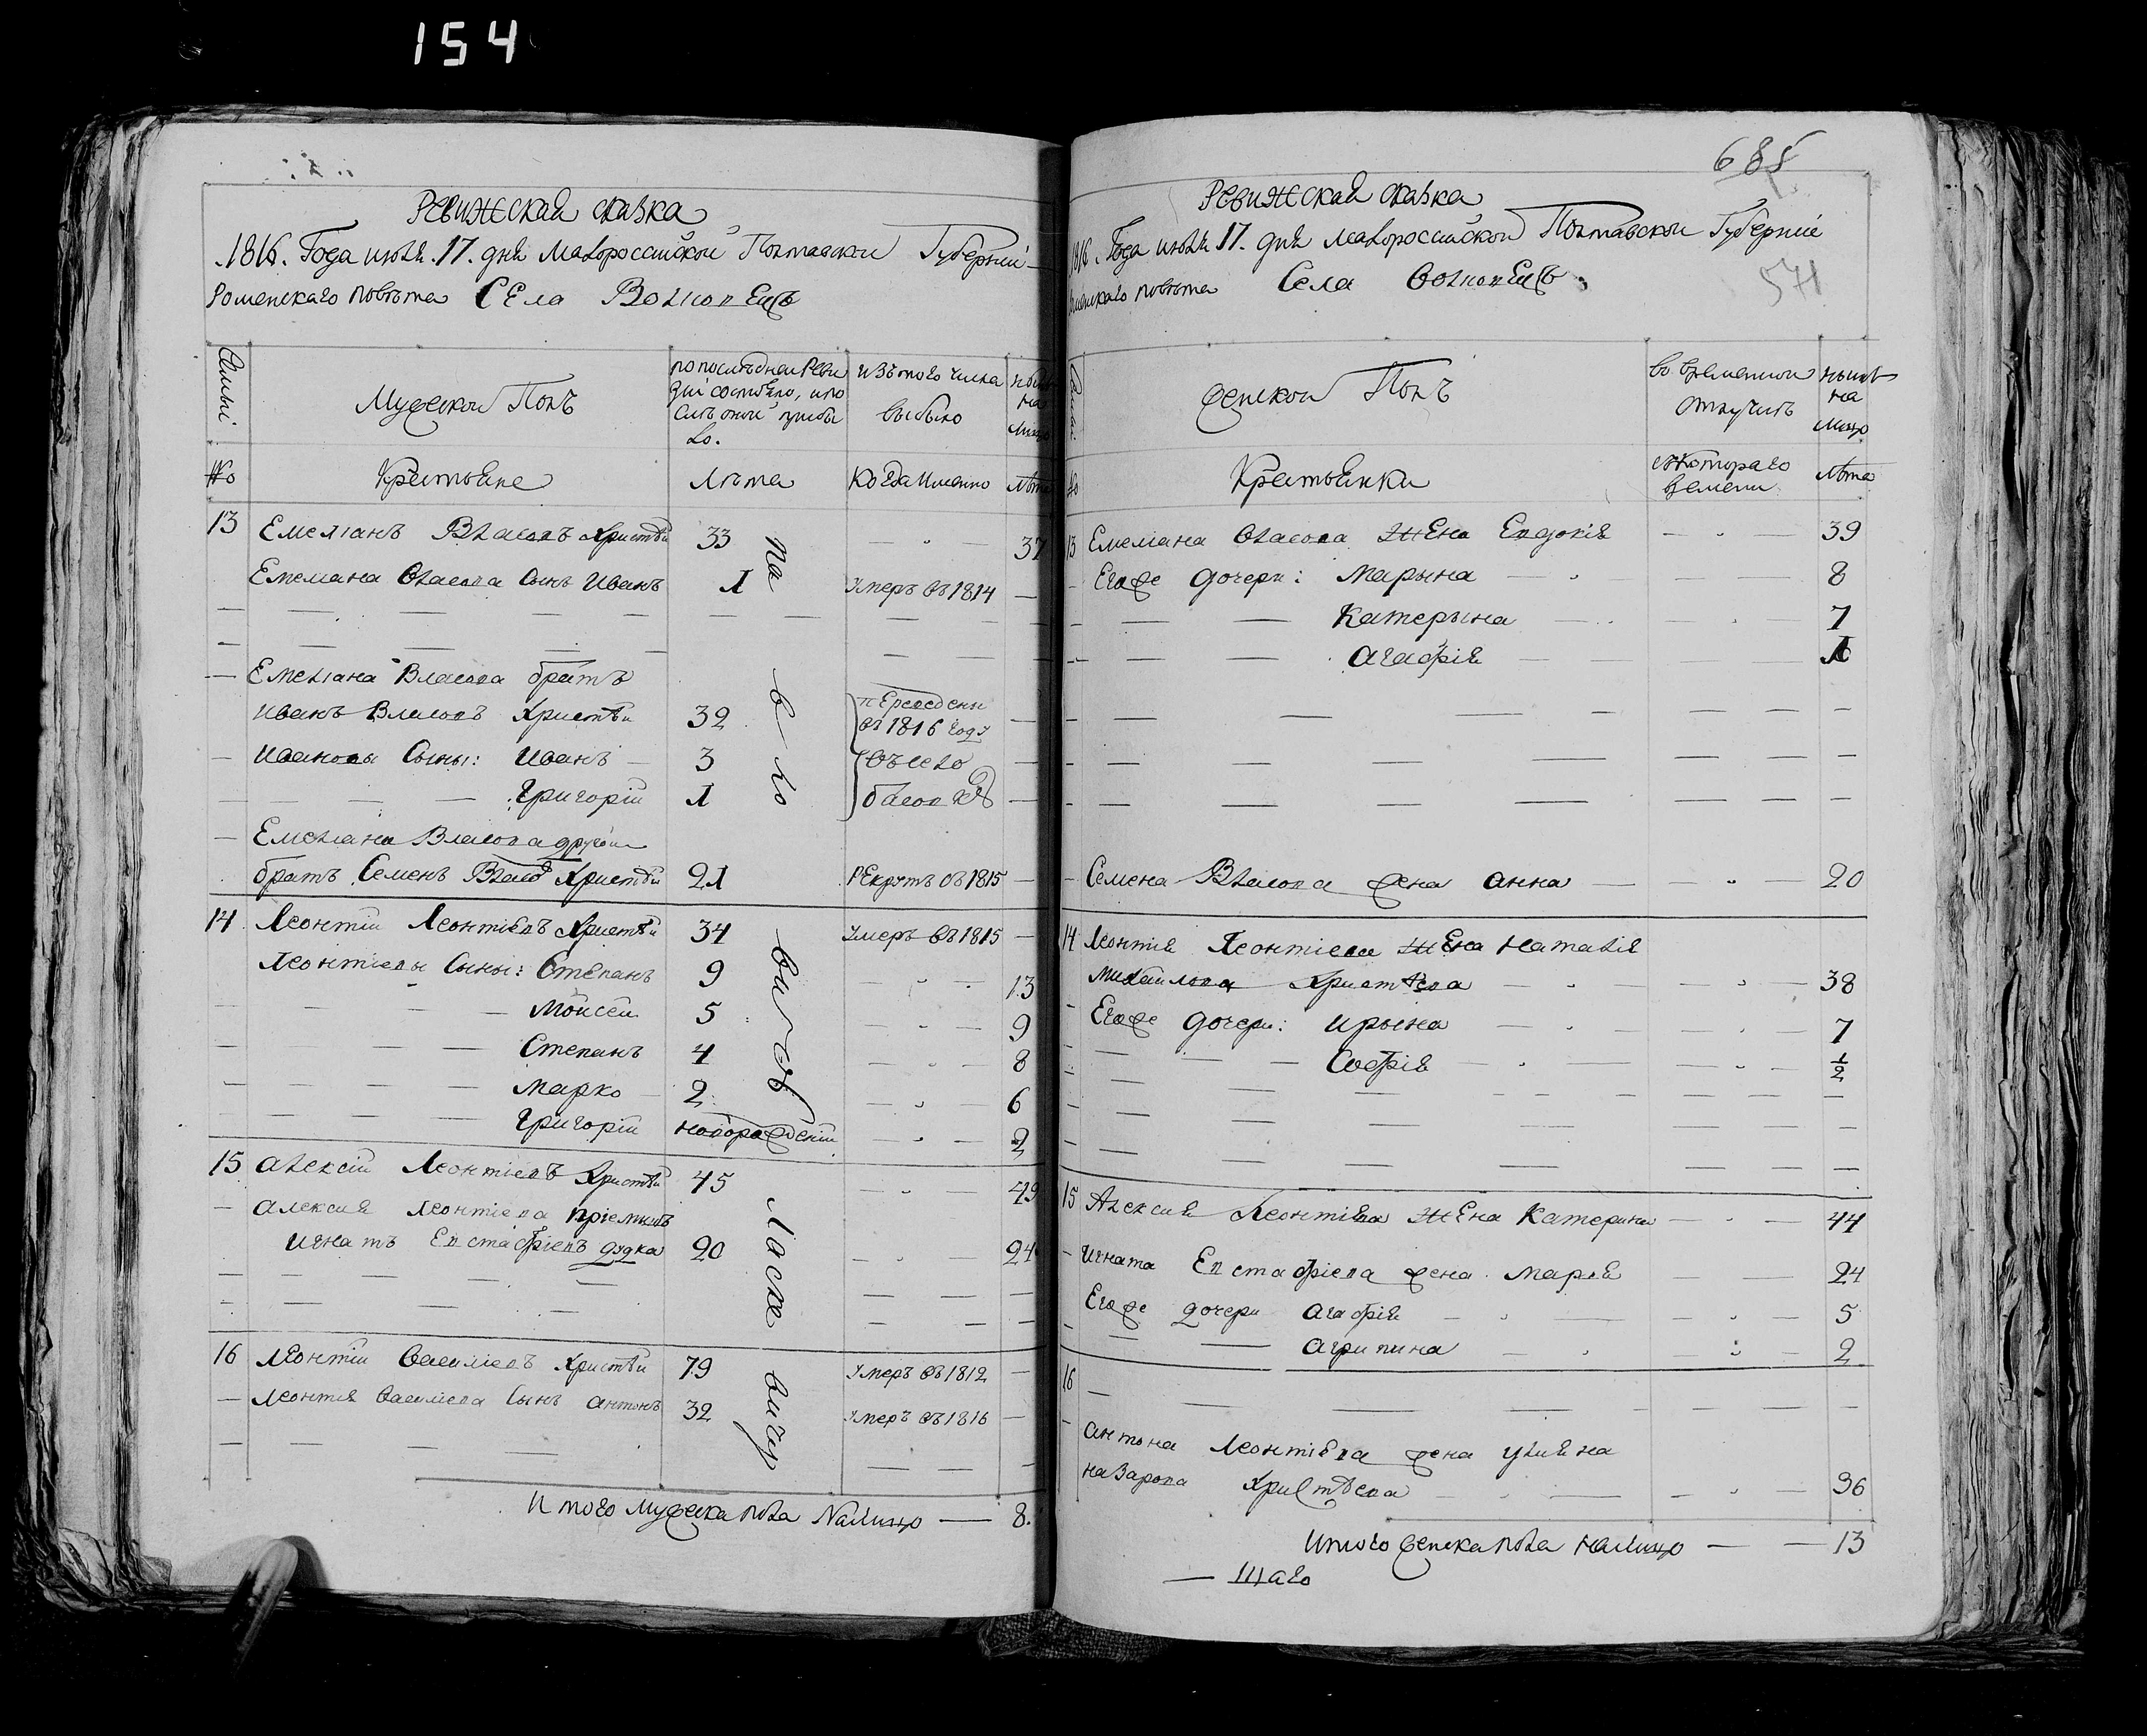 154
Ревижская сказка
1816. Года июля 17. дня Малороссийской Полтавской Губернiи
Роменского повѣта Села Волковецъ
Семьи.
Мужеской Полъ
по последней Реви
зiи состояло, и по
слѣ оной прибы
ло.
изъ того числа
выбыло
ныне
на
лицо
№
Крестьяне
Лѣта
Когда именно
Лѣта
13 Емелiанъ Власовъ Христѣй 33 — 37
Емелiана Власова Сынъ Иванъ 1 Умеръ въ 1814 —
— Емелiана Власова братъ
Иванъ Власовъ Христѣй 32 переведены въ 1816 году —
— Ивановы Сыны: Иванъ — 3 въ село —
Григорiй 1 —
— Емелiана Власова другой
братъ Семенъ Власовъ Христѣй 21 Рекрутъ въ 1815 —
14 Леонтiй Леонтiевъ Христѣй 34 Умеръ въ 1815 —
Леонтiевы Сыны: Степанъ 9 — 13
Мойсей 5 — 9
Степанъ 4 — 8
Марко — 2 — 6
Григорiй новорожденiй — 2
15 Алексiй Леонтiевъ Христѣй 45 — 49
— Алексия Леонтiева прiемышъ
Игнатъ Евстафiевъ дудка 20 — 24
16 Леонтiй Василiевъ Христѣй 79 Умеръ въ 1812 —
— Леонтия Василiева Сынъ Антонъ 32 Умеръ въ 1816 —
Итого мужеска пола Налицо — 8.
685
571
Ревижская сказка
1816. Года июля 17. дня Малороссийской Полтавской Губернiи
Роменского повѣта Села Волковецъ
Семьи
Женской Полъ
во временной
отлучкѣ
нынѣ
на
лицо
№
Крестьянки
съ котораго
времени
Лѣта
13 Емелiана Власова Жена Евдокiя — 39
Его же дочери: Марына — 8
Катерына — 7
Агафiя — 1
— Семена Власова жена Анна — 20
14 Леонтiя Леонтiева Жена Наталiя
Михайлова Христѣева — 38
Его же дочери: Ирына — 7
Софiя — ½
15 Алексия Леонтiева Жена Катерина — 44
— Игната Евстафiева жена Марiя — 24
Его же дочери Агафiя — 5
Агрипина — 2
16 —
Антона Леонтiева жена Улияна
Назарова Христѣева — 36
Итого женска пола налицо — 13
— Шаго